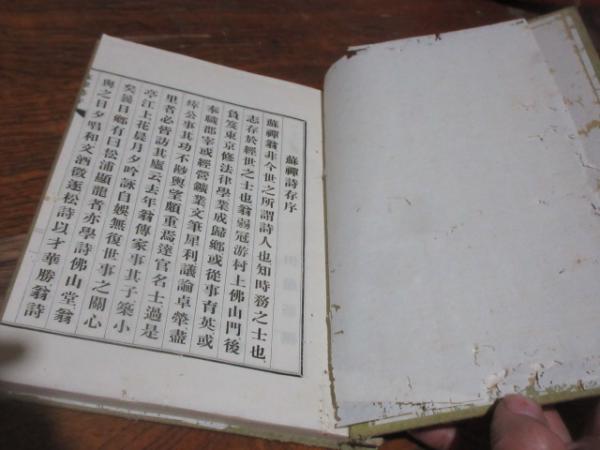 蘇禪詩存序
蘇禪翁非今世之所謂詩人也知時務之士也
志存於經世之士也翁弱冠游村上佛山門後
負笈東京修法律學業成歸鄉或從事育英或
奉職郡宰或經營鑛業文筆犀利議論卓犖盡
瘁公事其功不尠輿望頗重焉達官名士過是
里者必皆訪其廬云去年翁傳家事其子築小
亭江上花晨月夕吟詠自娛無復世事之關心
矣翁同鄉有曰松浦顯龍者亦學詩佛山堂翁
與之日夕唱和文酒徵逐松詩以才華勝翁詩